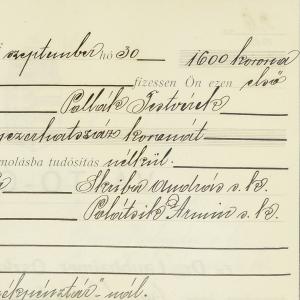 szeptember hó 30 — 1600 korona
fizessen Ön ezen első
Pollák Testvérek
ezerhatszáz koronát
molásba tudósítás nélkül.
Skriba András s. k.
Polátsik Ármin s. k.
nál.